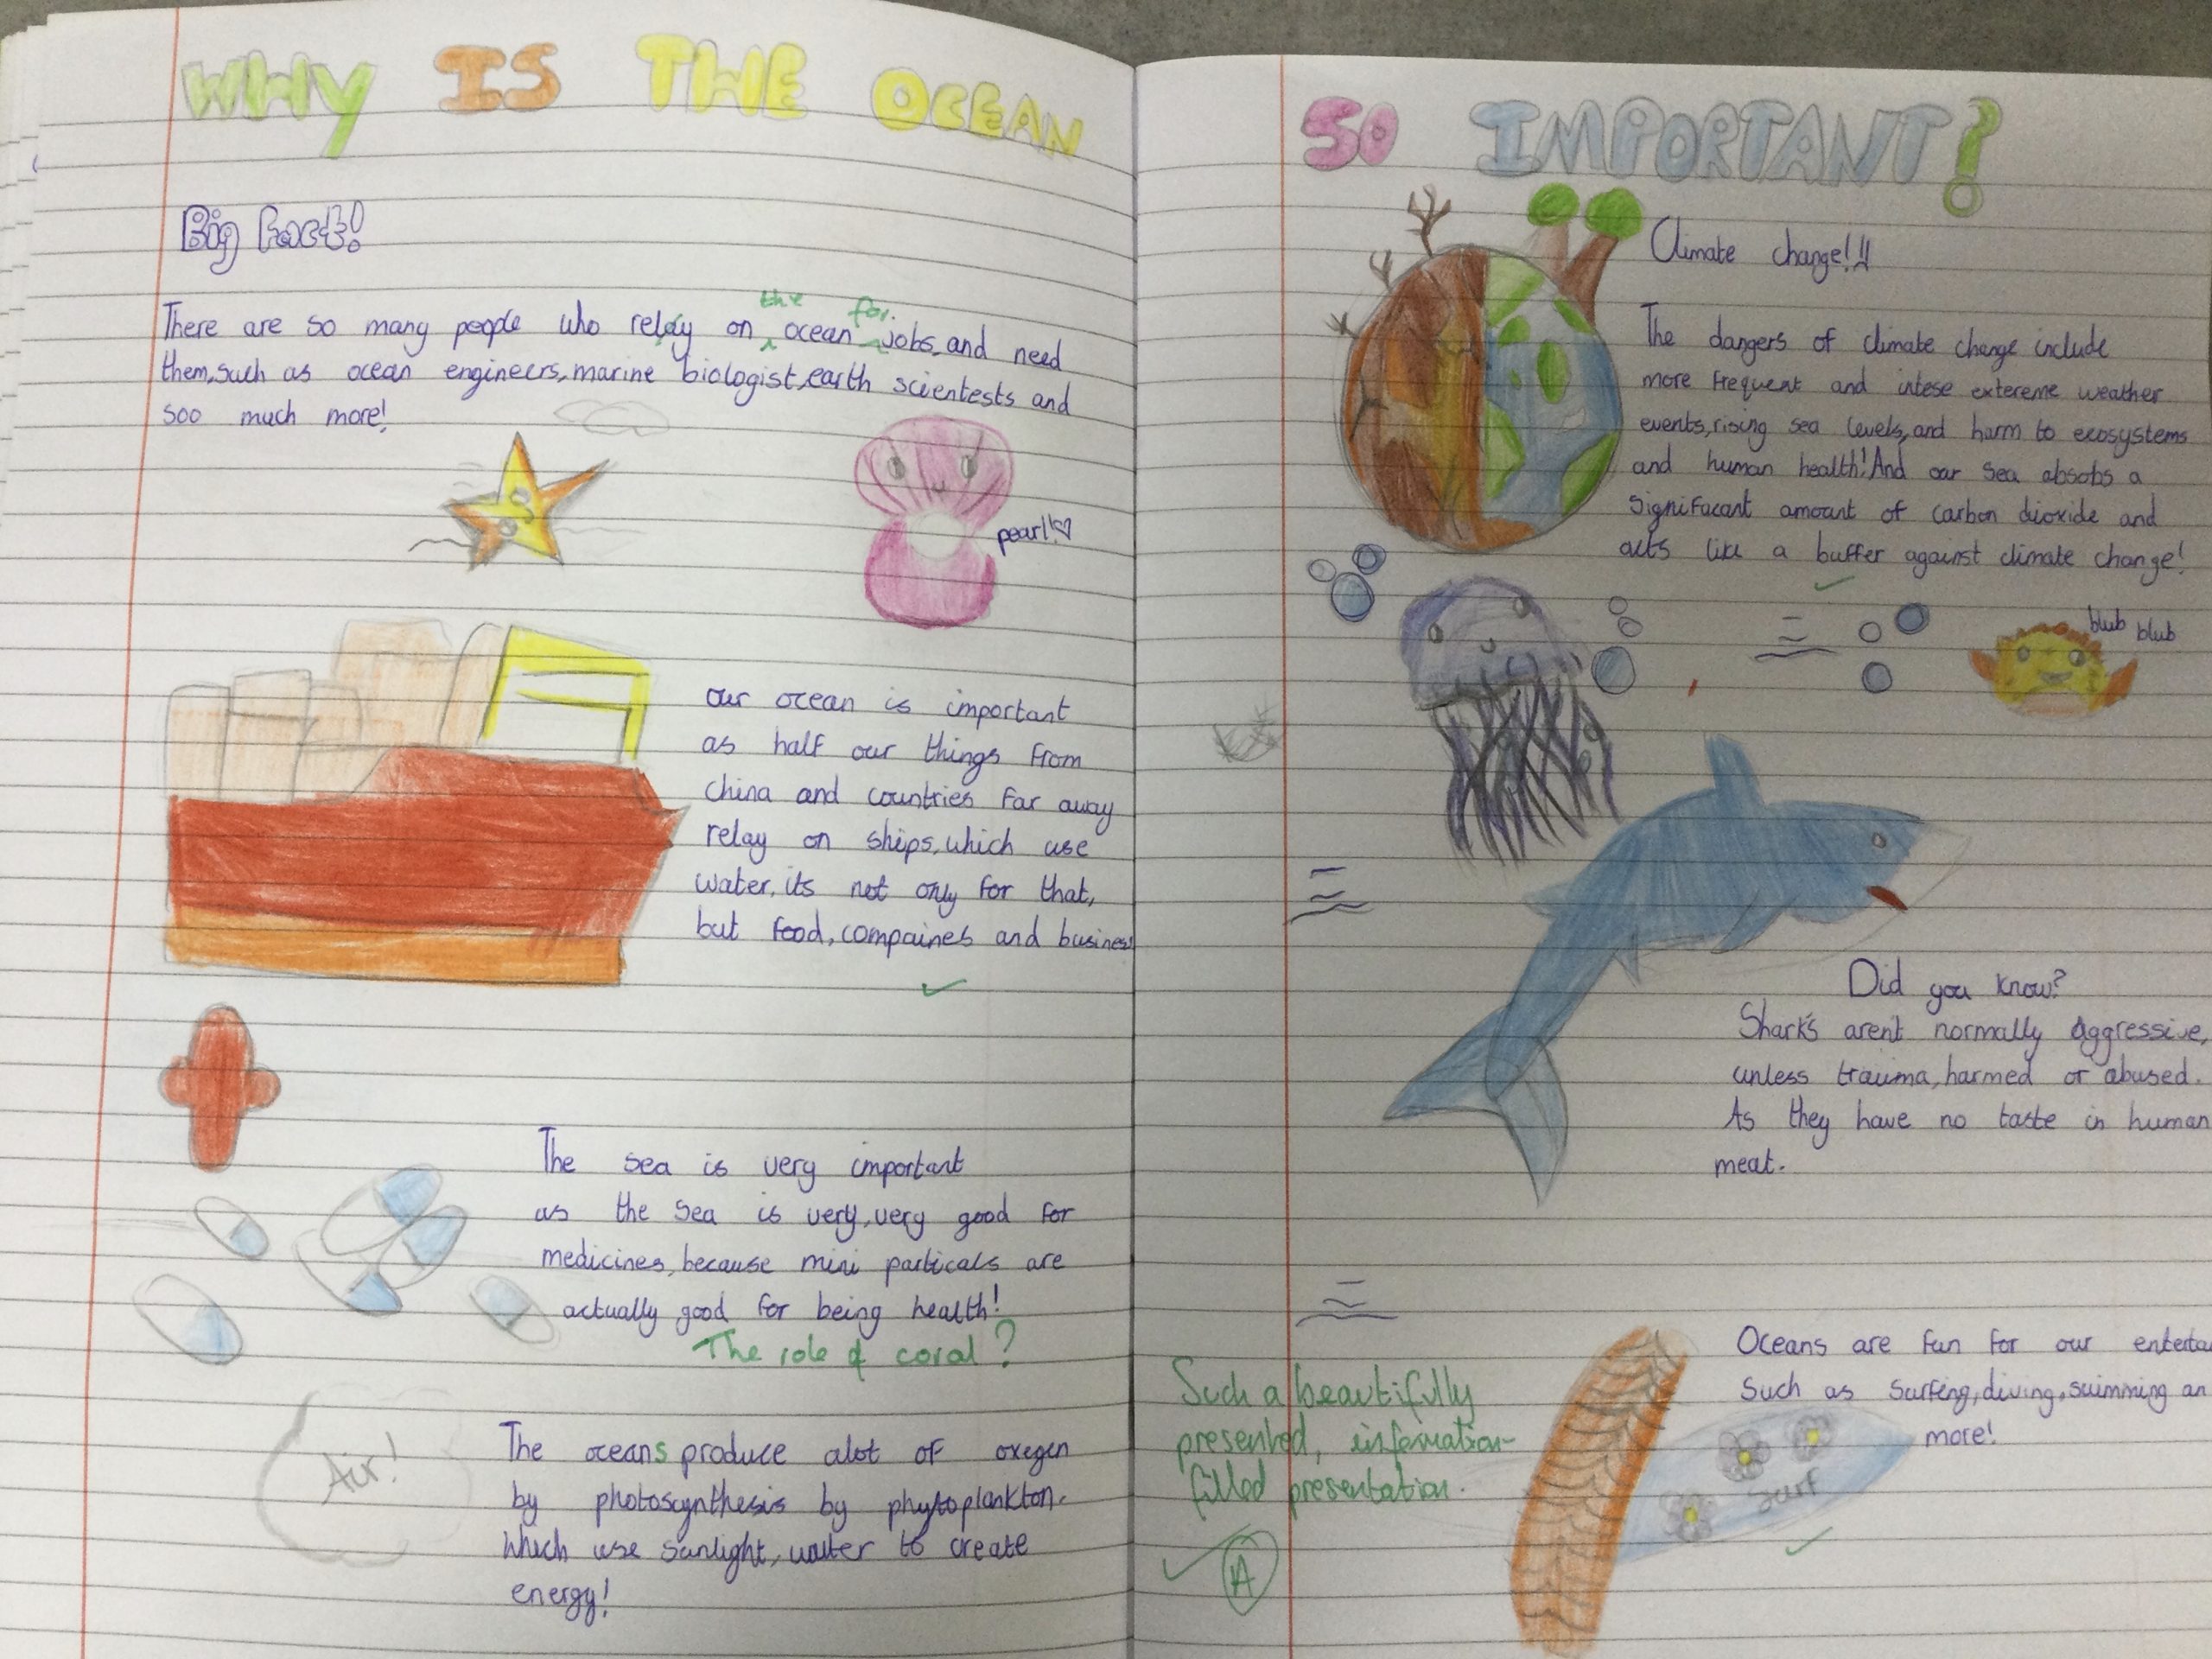 WHY IS THE OCEAN
Big Fact!
the for.
There are so many people who relay on ocean jobs, and need
them, such as ocean engineers, marine biologist, earth scientests and
soo much more!
pearl!
our ocean is important
as half our things from
china and countries far away
relay on ships, which use
water, its not only for that,
but food, compaines and business
The sea is very important
as the sea is very, very good for
medicines, because mini particals are
actually good for being health!
The role of coral?
Air!
The oceans produce alot of oxegen
by photosynthesis by phytoplankton.
Which use sunlight, water to create
energy!
SO IMPORTANT?
Climate change!!!
The dangers of climate change include
more frequent and intese extereme weather
events, rising sea levels, and harm to ecosystems
and human health! And our sea absobs a
significant amount of carbon dioxide and
acts like a buffer against climate change!
blub blub
Did you know?
Shark's arent normally aggressive,
unless trauma, harmed or abused.
As they have no taste in human
meat.
Oceans are fun for our
Such as surfing, diving, swimming
more!
surf
Such a beautifully
presented, information-
filled presentation.
A